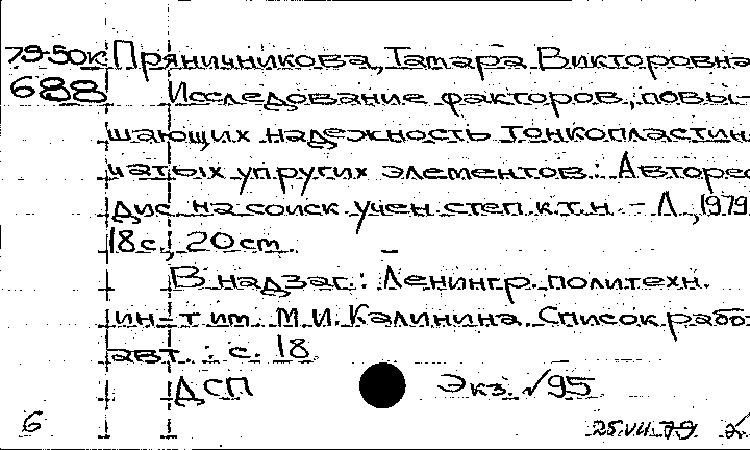 79-50к Пряничникова, Тамара Викторовна
688 Исследование факторов, повы-
шающих надежность тонкопластин-
чатых упругих элементов: Авторес
дис. на соиск. учен. степ. к.т.н. - Л., 1979
18 с., 20 cm.
В надзаг.: Ленингр. политехн.
ин-т им. М.И. Калинина. Список рабо-
авт.: с. 18
ДСП Экз. №95
6 25.VII.79